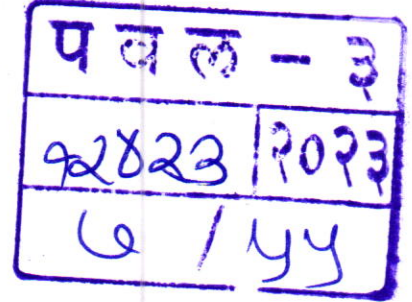 पवल - ३
१२४२३ २०२३
७ / ५५